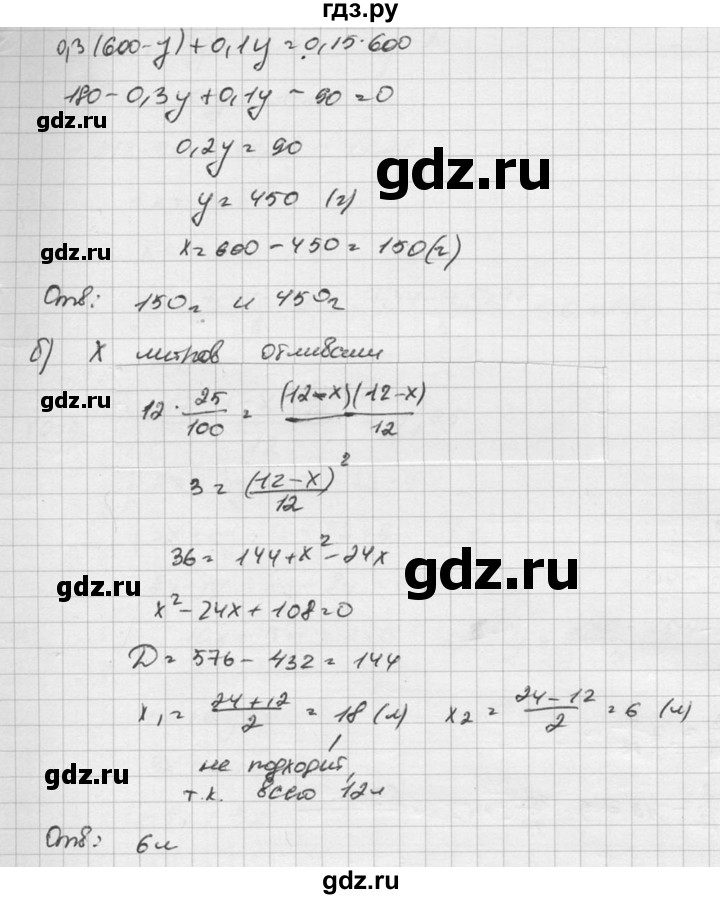 гдз.ру
0,3(600-y)+0,1y=0,15·600
180-0,3y+0,1y-90=0
gdz.ru
0,2y=90
gdz.ru
y=450 (г)
gdz.ru
x=600-450=150(г)
Отв: 150г и 450г
б) X литров отливали
gdz.ru
12·25/100=(12-x)(12-x)/12
3=(12-x)²/12
36=144+x²-24x
gdz.ru
gdz.ru
x²-24x+108=0
D=576-432=144
x₁=(24+12)/2=18(л) x₂=(24-12)/2=6 (л)
gdz.ru
не подходит,
т.к. всего 12л
Отв: 6л
gdz.ru
gdz.ru
gdz.ru